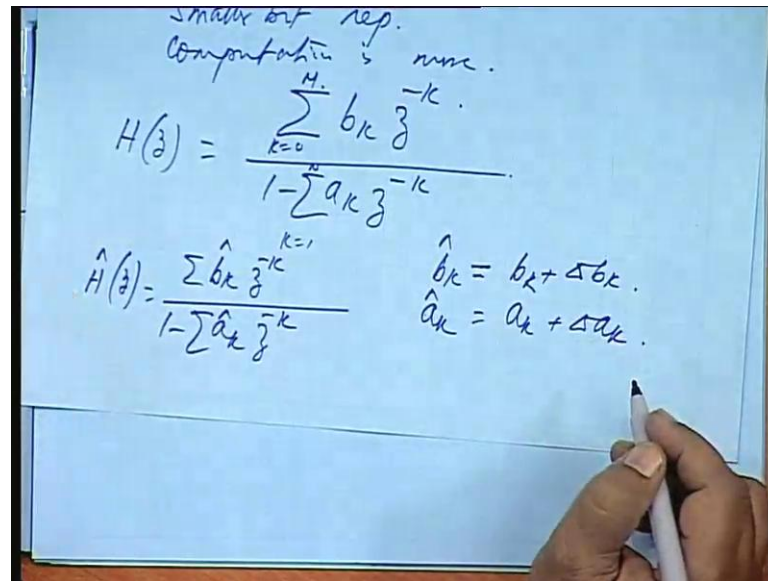 Smaller bit rep.
Computation is more.
H(z) = \frac{\sum_{k=0}^{M} b_k z^{-k}}{1 - \sum_{k=1}^{N} a_k z^{-k}}.
\hat{H}(z) = \frac{\sum \hat{b}_k z^{-k}}{1 - \sum \hat{a}_k z^{-k}}
\hat{b}_k = b_k + \Delta b_k.
\hat{a}_k = a_k + \Delta a_k.